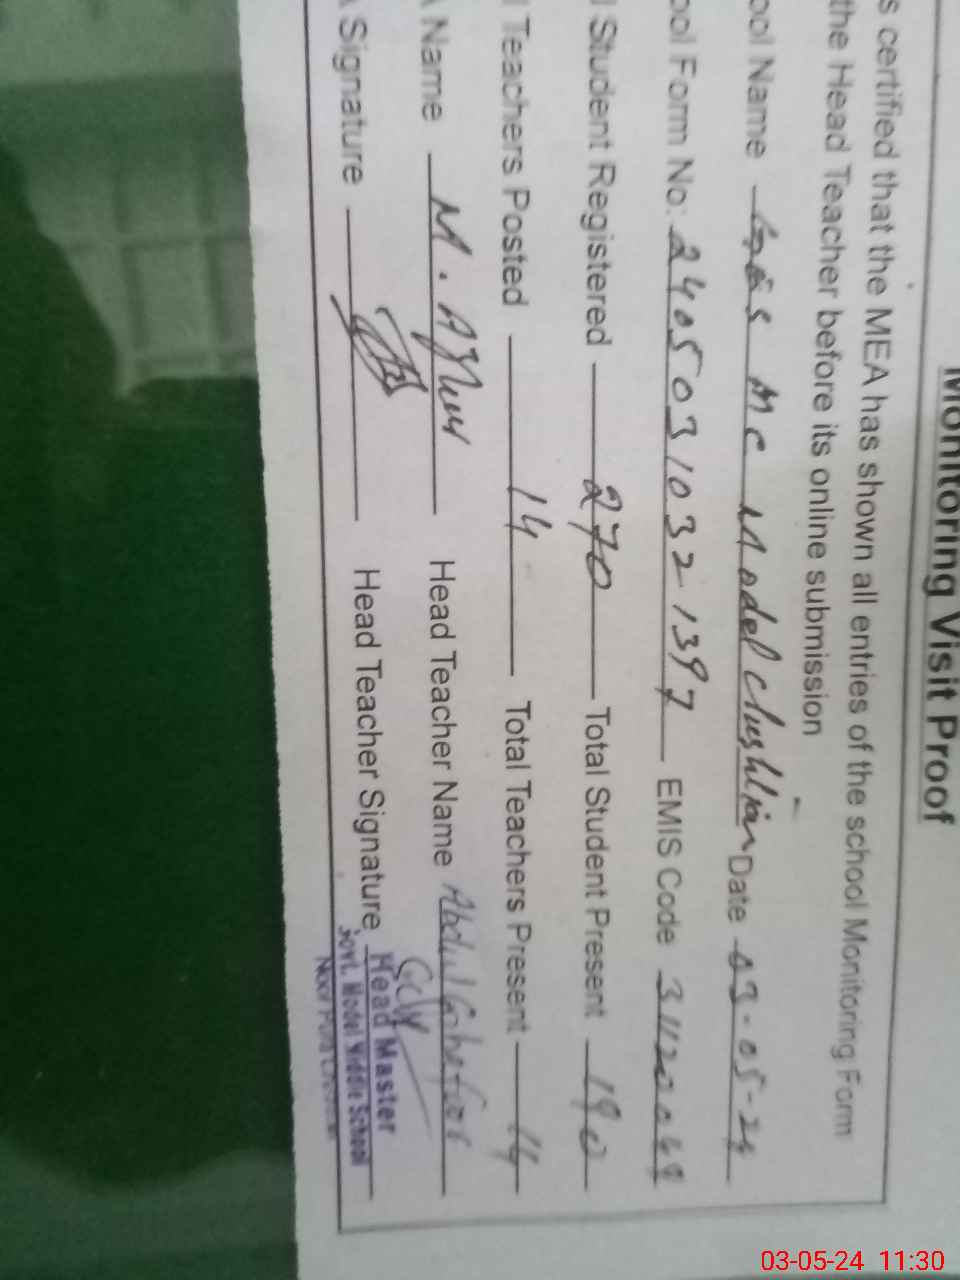 Monitoring Visit Proof
s certified that the MEA has shown all entries of the school Monitoring Form
the Head Teacher before its online submission
ool Name MC Model Date 03-05-24
ool Form No: 24050310321397 EMIS Code
l Student Registered 270 Total Student Present 190
l Teachers Posted 14 Total Teachers Present 14
Name M. Head Teacher Name Abdul Ghafoor
Signature Head Teacher Signature
Head Master
Govt. Model Middle School
03-05-24 11:30